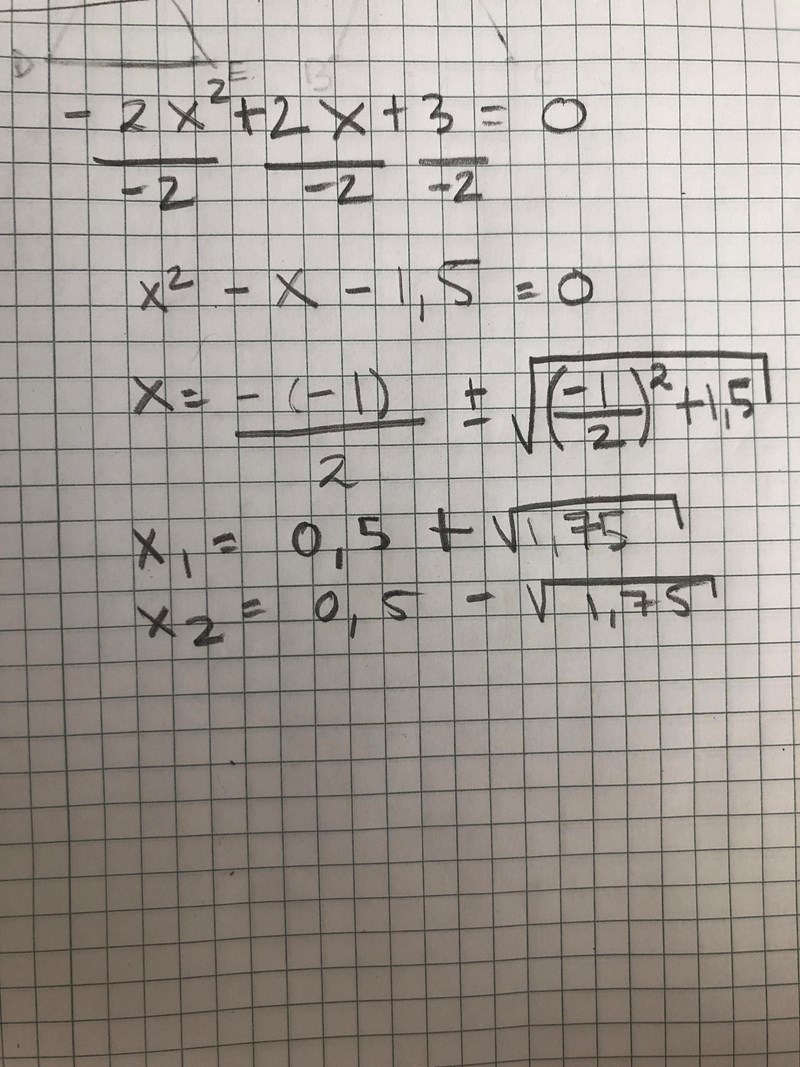 D E B C
- 2x² + 2x + 3 = 0
-2 -2 -2
x² - x - 1,5 = 0
x = -(-1)/2 ± √((-1/2)² + 1,5)
x₁ = 0,5 + √1,75
x₂ = 0,5 - √1,75